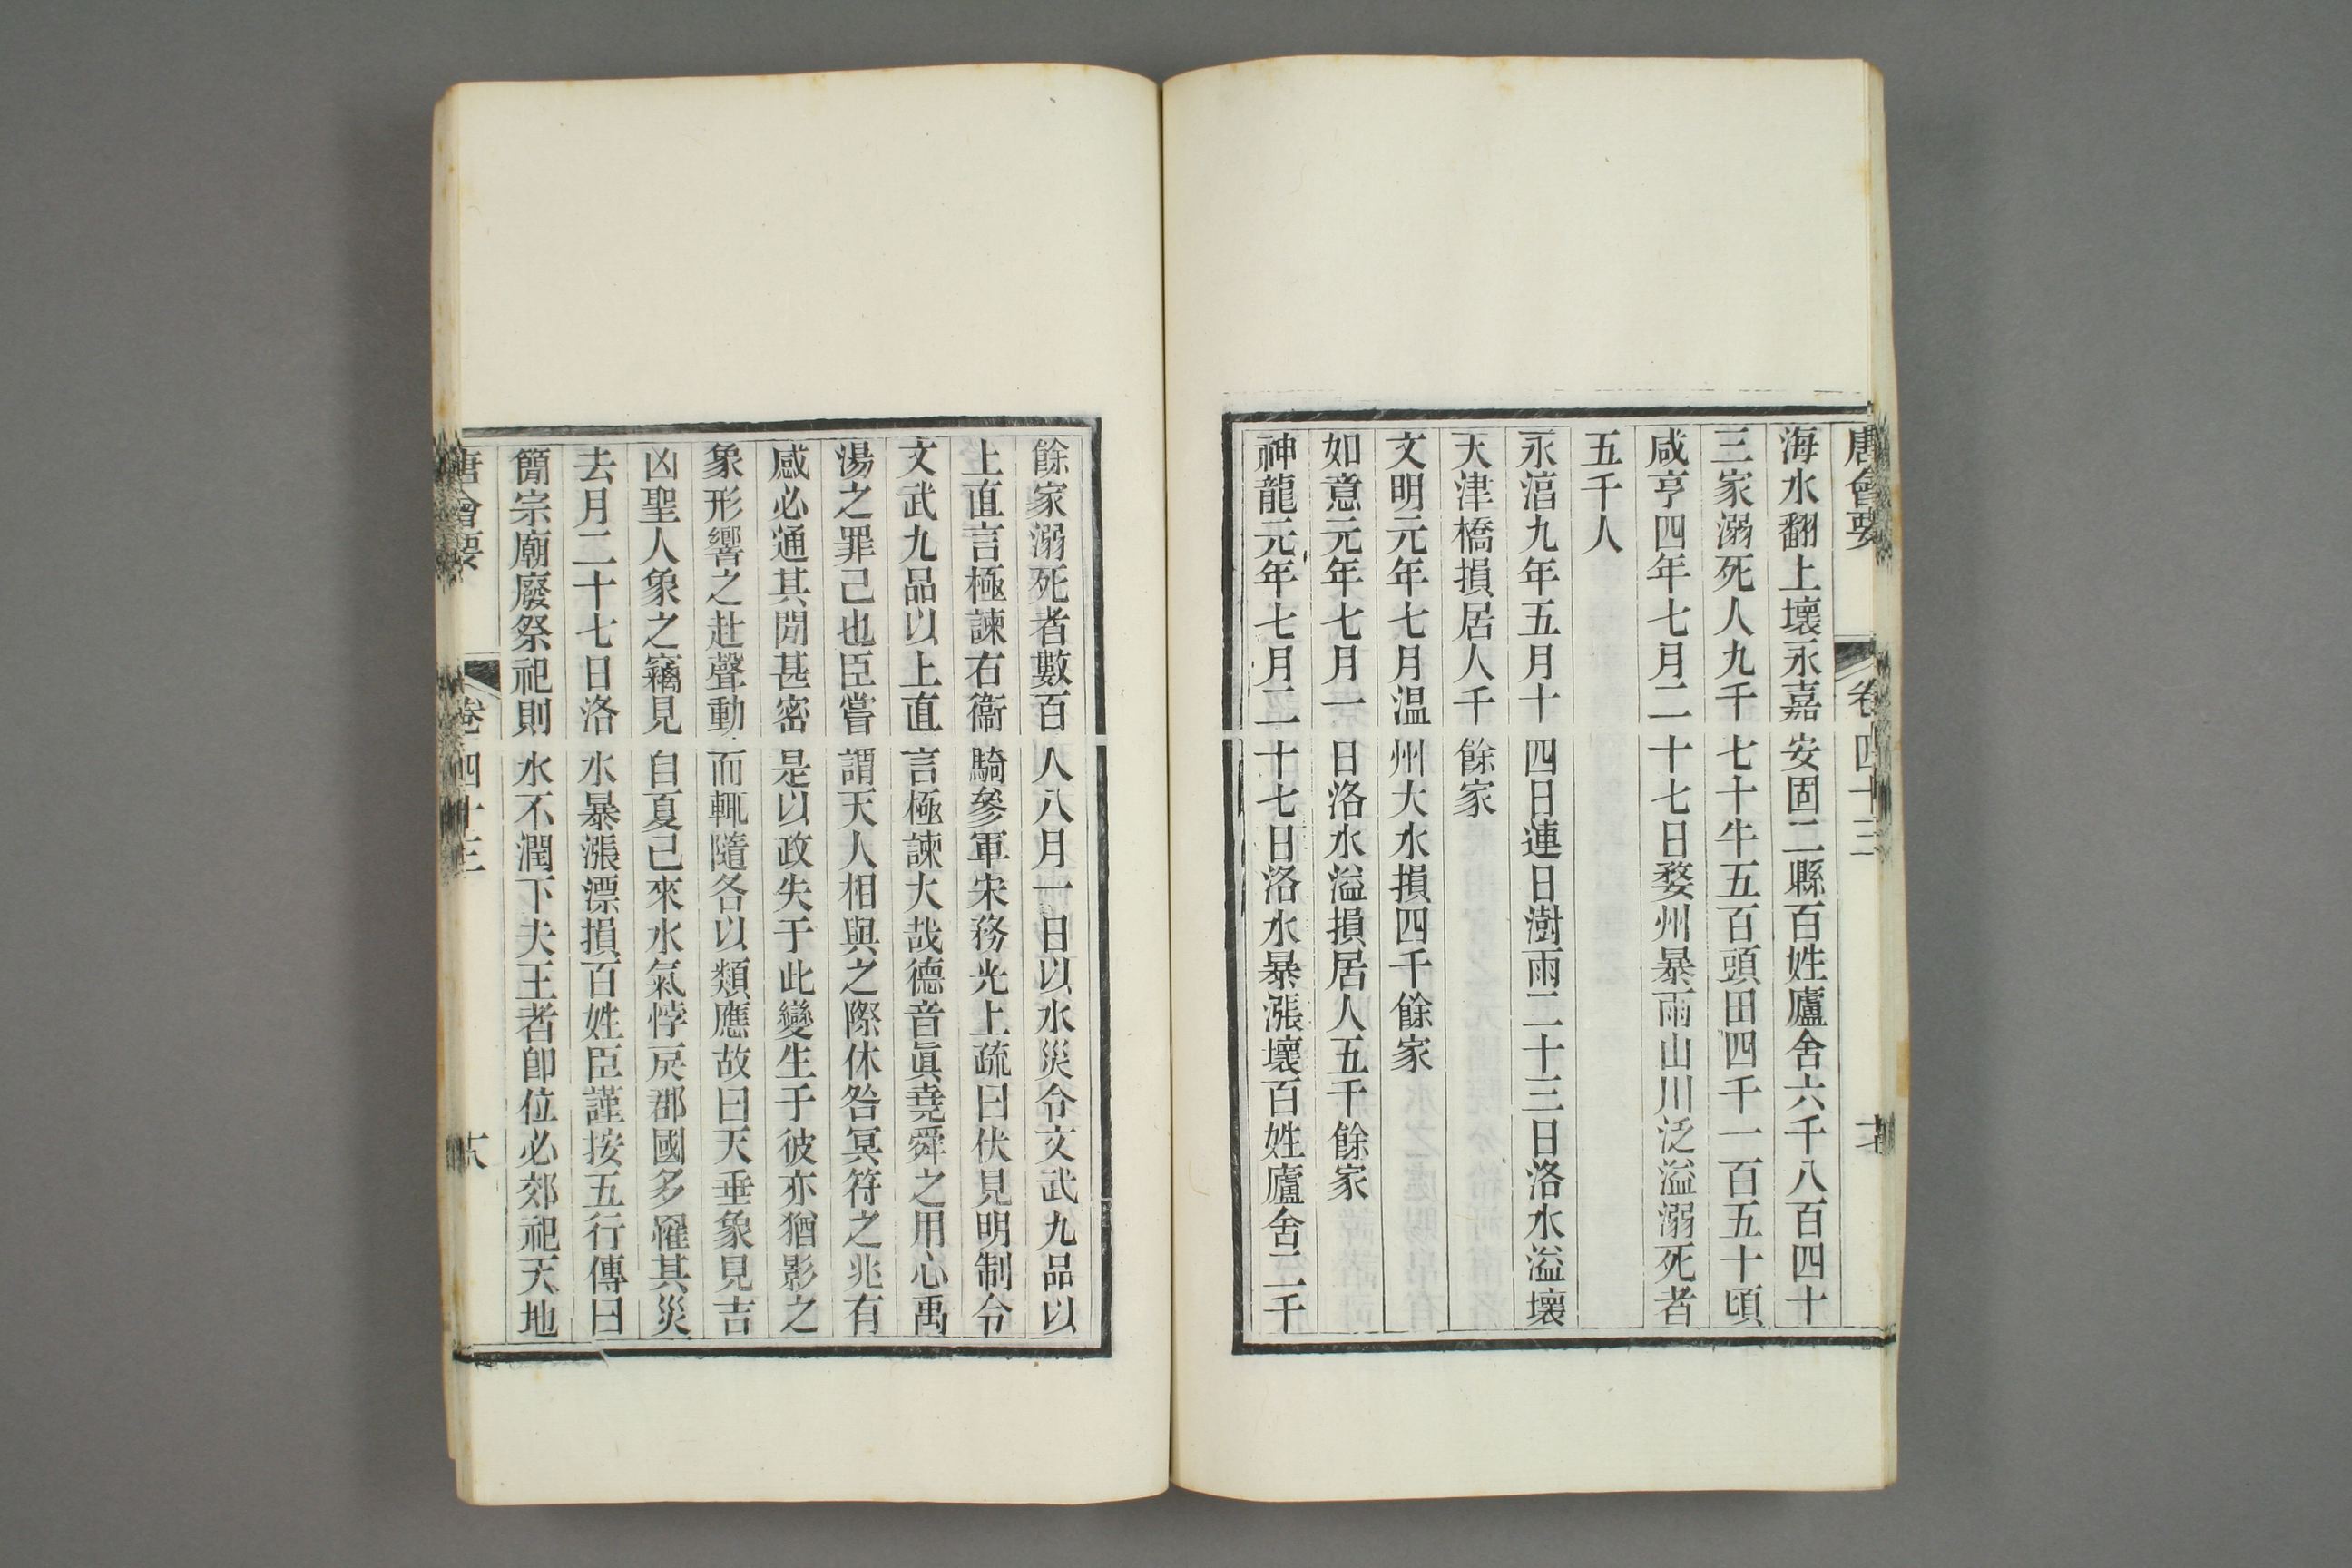 唐會要 卷四十三
海水翻上壞永嘉安固二縣百姓廬舍六千八百四十
三家溺死人九千七十牛五百頭田四千一百五十頃
咸亨四年七月二十七日婺州暴雨山川泛溢溺死者
五千人
永淳九年五月十四日連日澍雨二十三日洛水溢壞
天津橋損居人千餘家
文明元年七月温州大水損四千餘家
如意元年七月一日洛水溢損居人五千餘家
神龍元年七月二十七日洛水暴漲壞百姓廬舍二千
餘家溺死者數百人八月一日以水災令文武九品以
上直言極諫右衞騎參軍宋務光上疏曰伏見明制令
文武九品以上直言極諫大哉德音眞堯舜之用心禹
湯之罪己也臣嘗謂天人相與之際休咎冥符之兆有
感必通其閒甚密是以政失于此變生于彼亦猶影之
象形響之赴聲動而輒隨各以類應故曰天垂象見吉
凶聖人象之竊見自夏已來水氣悖戾郡國多罹其災
去月二十七日洛水暴漲漂損百姓臣謹按五行傳曰
簡宗廟廢祭祀則水不潤下夫王者卽位必郊祀天地
唐會要 卷四十三